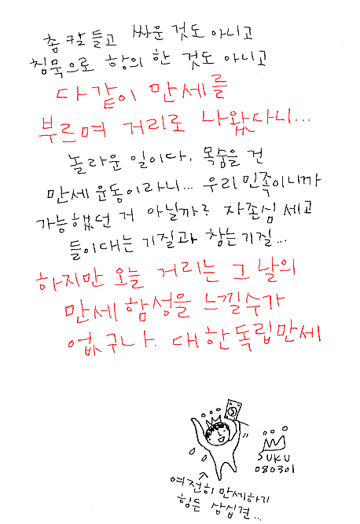 총칼들고 싸운 것도 아니고
침묵으로 항의 한 것도 아니고
다같이 만세를
부르며 거리로 나왔다니...
놀라운 일이다. 목숨을 건
만세운동이라니... 우리민족이니까
가능했던 거 아닐까? 자존심 세고
들이대는 기질과 참는기질...
하지만 오늘 거리는 그 날의
만세 함성을 느낄수가
없구나. 대한독립만세
SUKU
080301
여전히 만세하기
힘든 상십견...